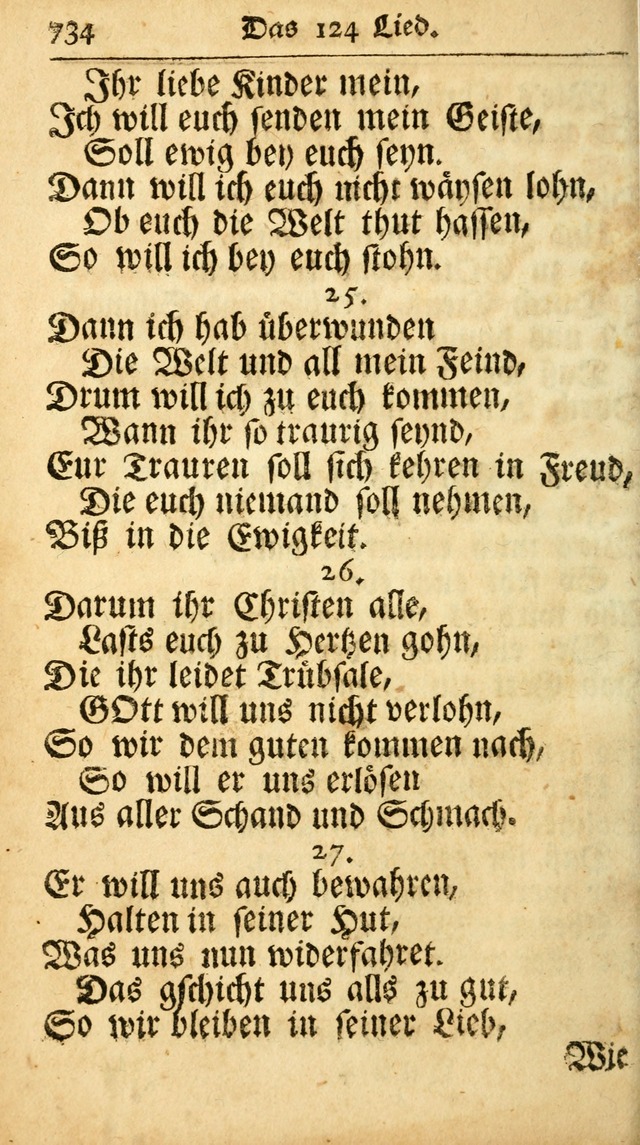 734 Das 124 Lied.
Ihr liebe Kinder mein,
Ich will euch senden mein Geiste,
Soll ewig bey euch seyn.
Dann will ich euch nicht wäysen lohn,
Ob euch die Welt thut hassen,
So will ich bey euch stohn.
25.
Dann ich hab überwunden
Die Welt und all mein Feind,
Drum will ich zu euch kommen,
Wann ihr so traurig seynd,
Eur Trauren soll sich kehren in Freud,
Die euch niemand soll nehmen,
Biß in die Ewigkeit.
26.
Darum ihr Christen alle,
Lasts euch zu Hertzen gohn,
Die ihr leidet Trübsale,
GOtt will uns nicht verlohn,
So wir dem guten kommen nach,
So will er uns erlösen
Aus aller Schand und Schmach.
27.
Er will uns auch bewahren,
Halten in seiner Hut,
Was uns nun widerfahret.
Das gschicht uns alls zu gut,
So wir bleiben in seiner Lieb,
Wie